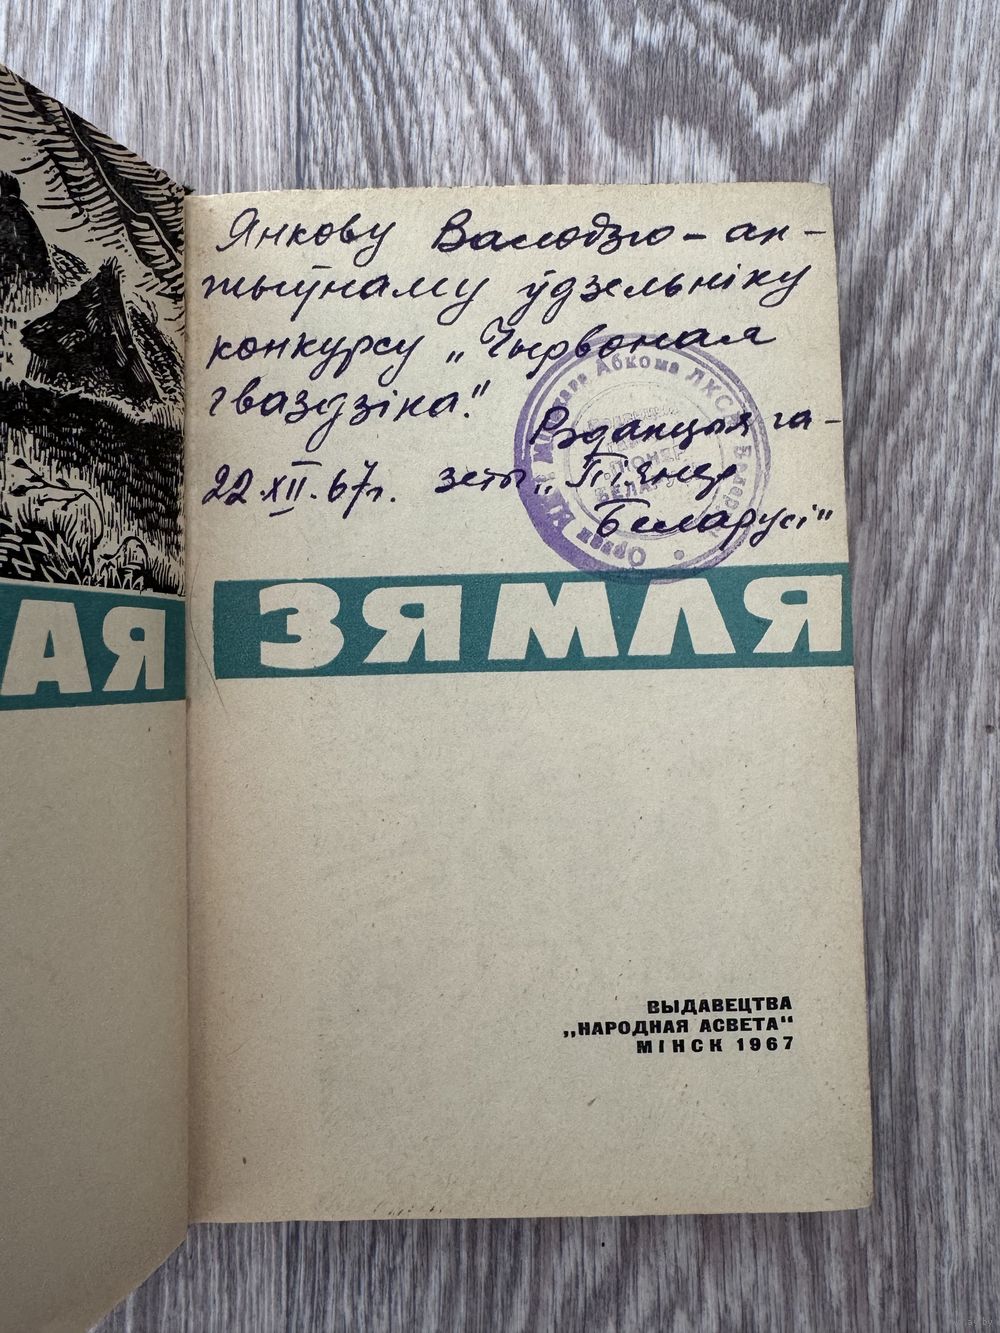 Янкову Валодзю – ак-
тыўнаму ўдзельніку
конкурсу „Чырвоная
гваздзіка".
Рэдакцыя га-
22.XII.67г. зеты „Піянер
Беларусі"
АЯ ЗЯМЛЯ
ВЫДАВЕЦТВА
„НАРОДНАЯ АСВЕТА"
МІНСК 1967
Орган ЦК і Мін Абкома ЛКСМ Беларусі
ПІЯНЕР
БЕЛАРУСІ